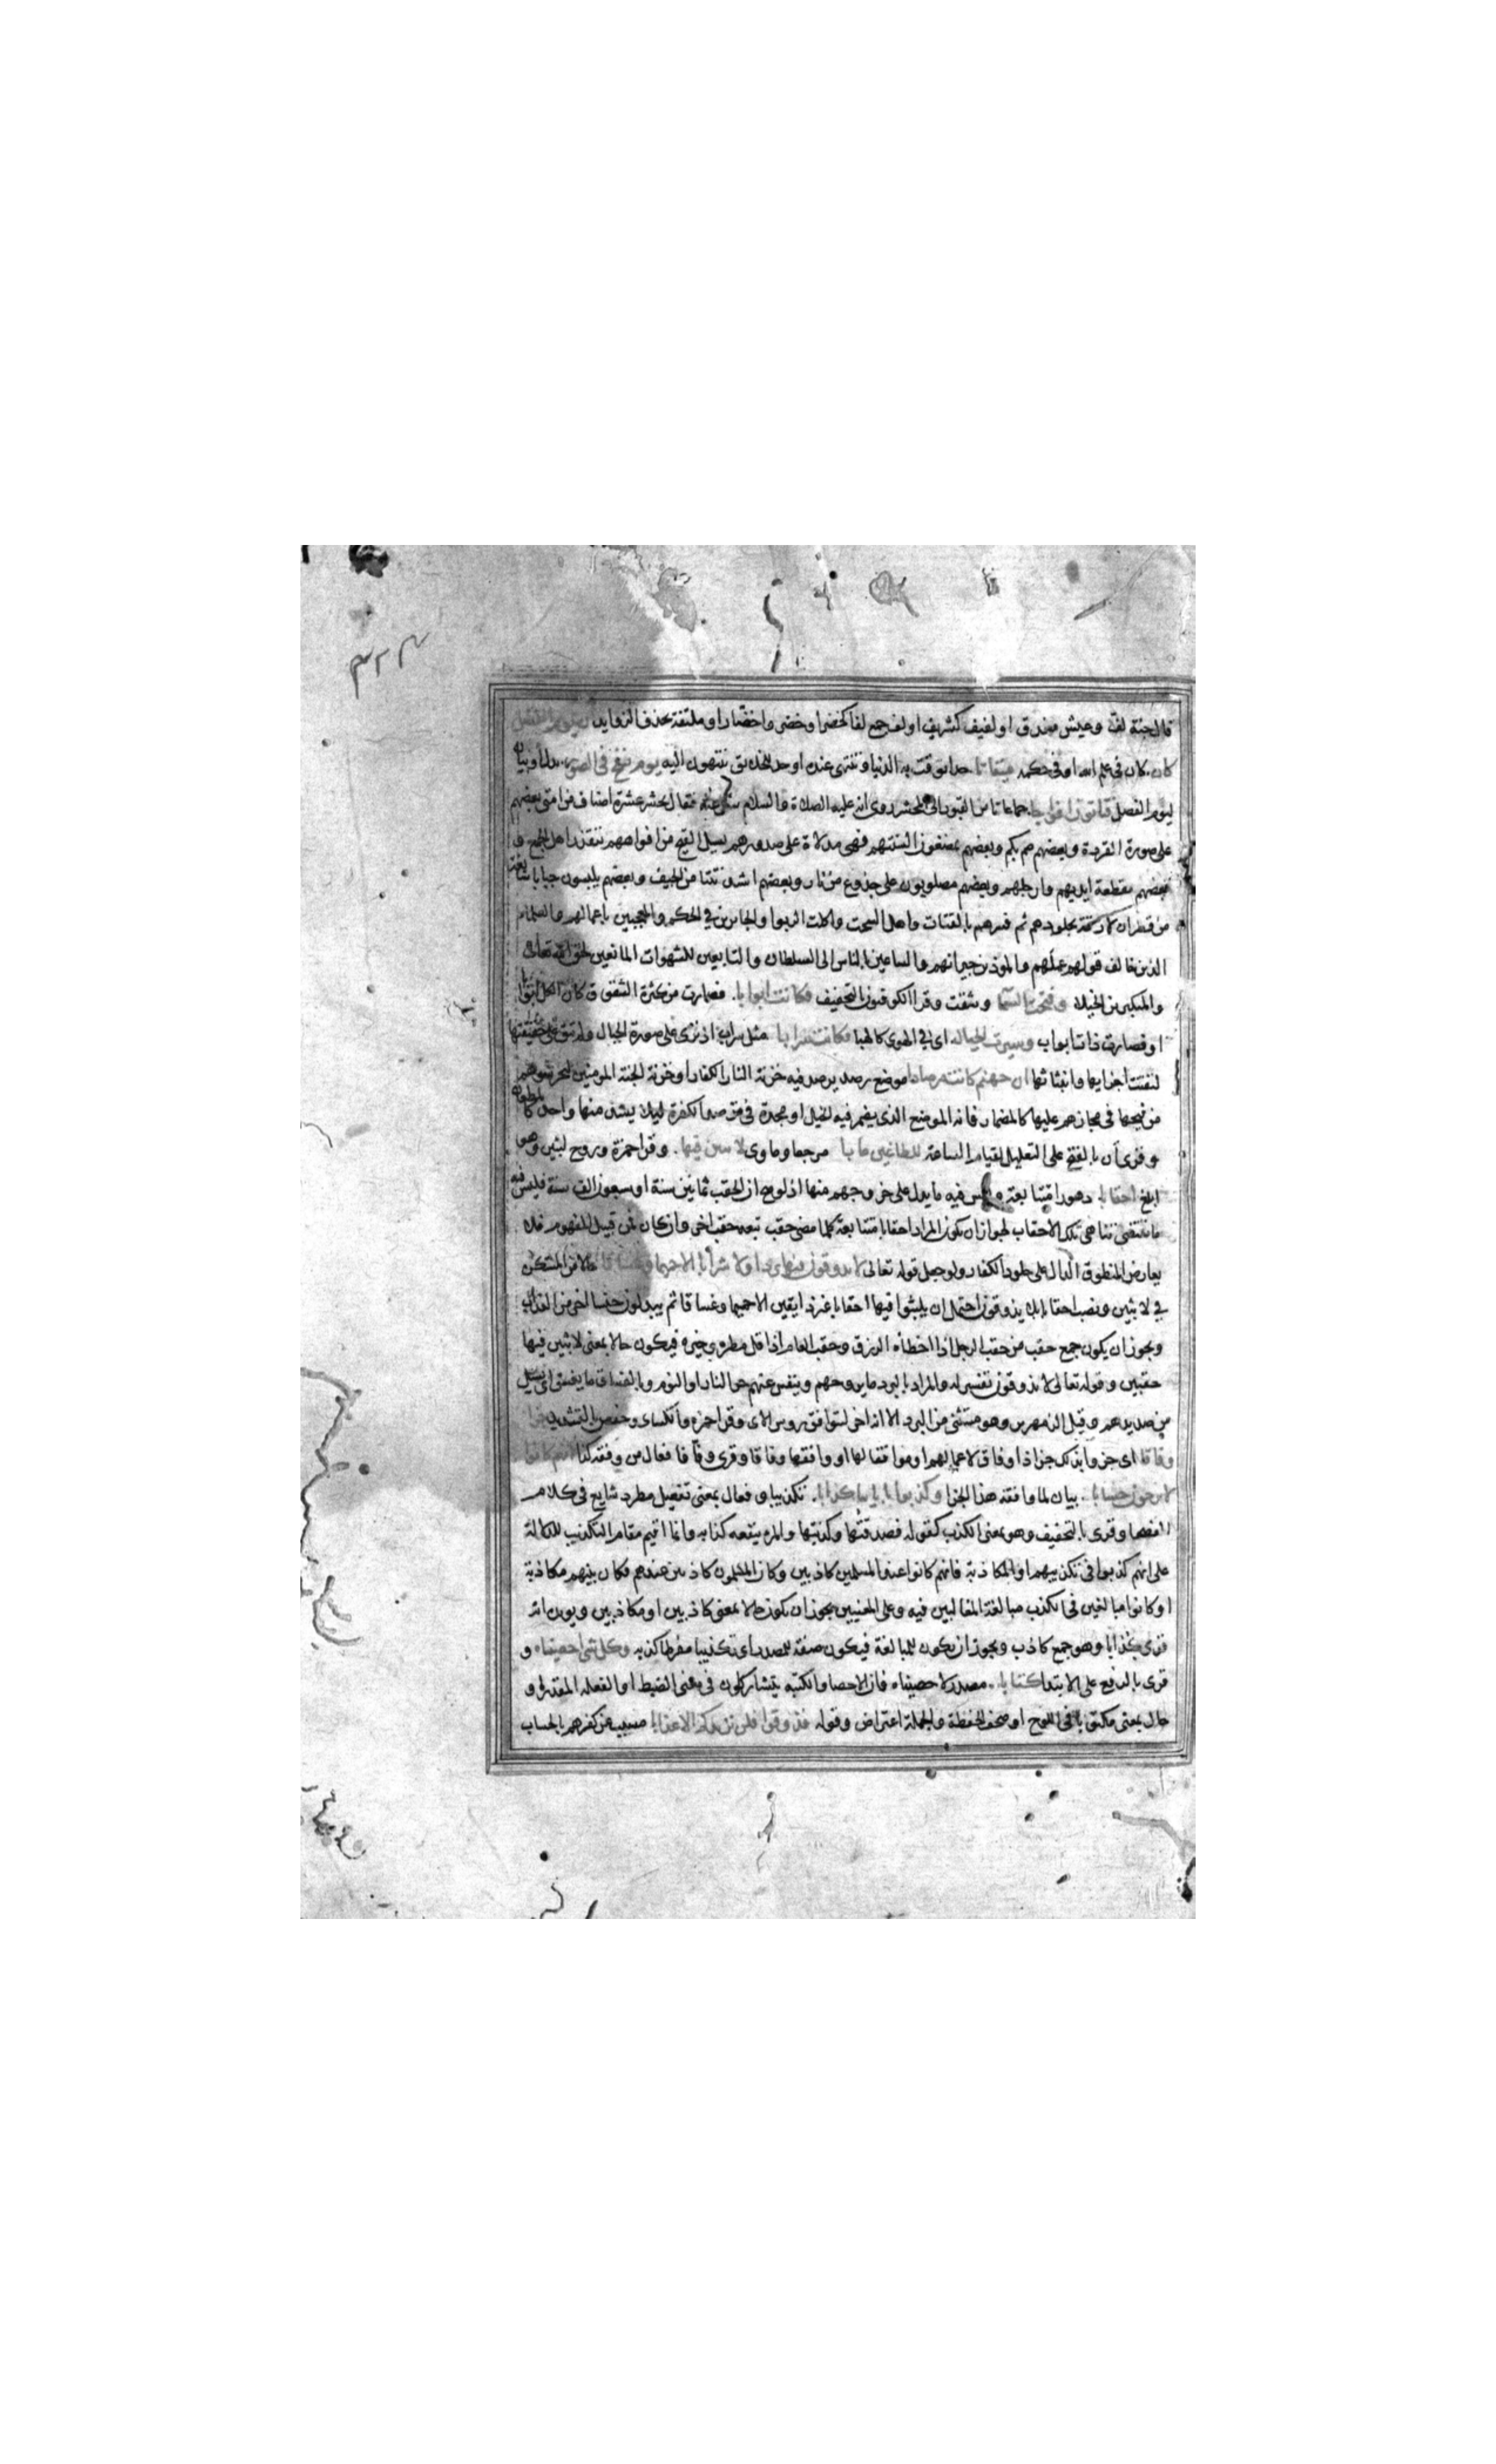 قال جنة لفّ وعيش مغدق او لفيف كشريف او لف جمع لفا كخضرا وخضر واخضار او ملتفة بحذف الزوايد ان يوم الفصل
كان كان فى علم الله او فى حكمه ميقاتا حدا توقت به الدنيا وتنتهى عنده او حد للخلايق تنتهون اليه يوم ينفخ فى الصور بدل او بيان
ليوم الفصل فتاتون افواجا جماعات من القبور الى المحشر روى انه عليه الصلاة والسلام سئل عنه فقال يحشر عشرة اصناف من امتى بعضهم
على صورة القردة وبعضهم صم بكم وبعضهم يمضغون السنتهم فهى مدلاة على صدورهم يسيل القيح من افواههم يتقذرهم اهل الجمع و
بعضهم مقطعة ايديهم وارجلهم وبعضهم مصلوبون على جذوع من نار وبعضهم اشد نتنا من الجيف وبعضهم يلبسون جبابا سابغة
من قطران لازقة بجلودهم ثم فسرهم بالقتات واهل السحت واكلة الربوا والجايرين فى الحكم والمعجبين باعمالهم والعلماء
الذين خالف قولهم عملهم والموذين جيرانهم والساعين بالناس الى السلطان والتابعين للشهوات المانعين حق الله تعالى
والمتكبرين الخيلا وفتحت السما وشقت وقرا الكوفيون بالتخفيف فكانت ابوابا فصارت من كثرة الشقوق كان الكل ابوابا
او فصارت ذات ابواب وسيرت الجبال اى فى الهوى كالهبا فكانت سرابا مثل سراب اذ ترى على صورة الجبال ولم تبق على حقيقتها
لتفتت اجزايها وانبثاثها ان جهنم كانت مرصادا موضع رصد يرصد فيه خزنة النار الكفار او خزنة الجنة المومنين ليحرسوهم
من فيحها فى مجازهم عليها كالمضمار فانه الموضع الذى يضمر فيه الخيل او مجدة فى ترصد الكفرة ليلا يشذ منها واحد كالمطعان
وقرى ان بالفتح على التعليل لقيام الساعة للطاغين مابا مرجعا وماوى لابثين فيها وقرا حمزة وروح لبثين وهو
ابلغ احقابا دهورا متتابعة وليس فيه ما يدل على خروجهم منها اذ لو صح ان الحقب ثمانين سنة او سبعون الف سنة فليس فيه
ما يقتضى تناهى تلك الاحقاب لجواز ان يكون المراد احقابا متتابعة كلما مضى حقب تبعه حقب اخر وان كان فمن قبيل المفهوم فلا
يعارض المنطوق الدال على خلود الكفار ولو جعل قوله تعالى لا يذوقون فيها بردا ولا شرابا الا حميما وغساقا حالا من المستكن
فى لابثين ونصب احقابا بلا يذوقون احتمل ان يلبثوا فيها احقابا غير ذايقين الا حميما وغساقا ثم يبدلون جنسا اخر من العذاب
ويجوز ان يكون جمع حقب من حقب الرجل اذا اخطاه الرزق وحقب العام اذا قل مطره وخيره فيكون حالا بمعنى لابثين فيها
حقبين وقوله تعالى لا يذوقون تفسير له والمراد بالبرد ما يروحهم وينفس عنهم حر النار او النوم وبالغساق ما يغسق اى يسيل
من صديدهم وقيل الزمهرير وهو مستثنى من البرد الا انه اخر لتوافق روس الاى وقرا حمزه والكساى وحفص بالتشديد جزا
وفاقا اى جزوا بذلك جزا ذا وفاق لاعمالهم او موافقا لها او وافقها وفاقا وقرى وفّاقا فعال من وفقه كذا انهم كانوا
لا يرجون حسابا بيان لما وافقه هذا الجزا وكذبوا باياتنا كذابا تكذيبا وفعال بمعنى تفعيل مطرد شايع فى كلام
الفصحا وقرى بالتخفيف وهو بمعنى الكذب كقوله فصدقتها وكذبتها والمرء ينفعه كذابه وانما اقيم مقام التكذيب للدلالة
على انهم كذبوا فى تكذيبهم او المكاذبة فانهم كانوا عند المسلمين كاذبين وكان المسلمون كاذبين عندهم فكان بينهم مكاذبة
او كانوا مبالغين فى الكذب مبالغة المغالبين فيه وعلى المعنيين يجوز ان يكون حالا بمعنى كاذبين او مكاذبين ويويده انه
قرى كُذابا وهو جمع كاذب ويجوز ان يكون للمبالغة فيكون صفة للمصدر اى تكذيبا مفرطا كذبه وكل شى احصيناه و
قرى بالرفع على الابتدا كتابا مصدر لاحصيناه فان الاحصا والكتبه يتشاركون فى معنى الضبط او لفعله المقدر او
حال بمعنى مكتوبا فى اللوح او صحف الحفظة والجملة اعتراض وقوله فذوقوا فلن نزيدكم الا عذابا مسبب عن كفرهم بالحساب